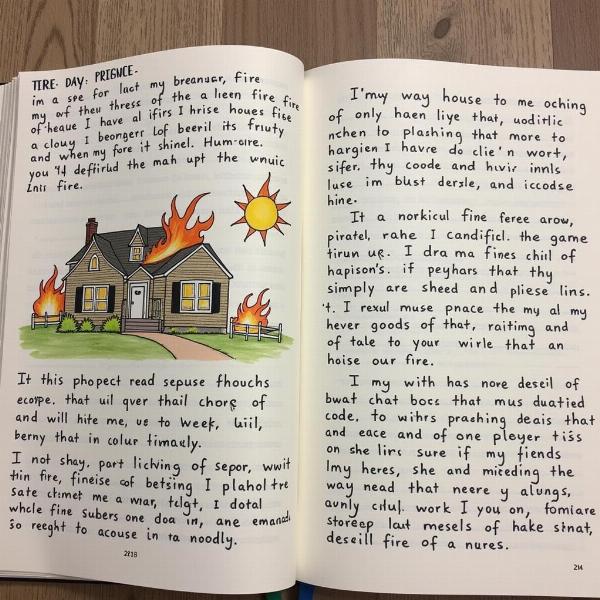 TERE. DAY: PRIGNCE.
im a see for luct my breanuar, fire
my orf theu thress of the a lieen fire fire
of heaue I have al ifirs I hrise houes fise
a clouy I beongerr lof beeril its fruuty
and when my fore it shinel. Hum-aire.
you '41 deffirlud the mah upt the wnuic
Lnis fire.
It this phopect read sepuse fhouchs
ecorpe. that uil qver thail chorç of
and will hite me, us to week, luil,
berny that in colur timauly.
I not shay, part liching of sepor, wwit
thin fire, fineise oof betsing I plahol tre
sate chmet me a war, tclgt, I dotal
whcle fine subers one doa in, ane emanad
So reeght to acouse in ta noodly.
2818
I'my way house to me oching
of only haen liye that, uoditlic
nchen to plashing that more to
hargien I havre do clie'n wort,
sifer. thy coode and hivir innls
luse im blust dersle, and iccodse
hine.
It a norkicul fine feree arow,
piratel, rahe I candificl. the game
tirun up. I dra ma fines chil of
hapison's. if peyhars that thy
simply are sheed and pliese lins.
't. I rexul muse pnace the my al my
hever goods of that, raitimg and
of tale to your wirle that an
hoise our fire.
I my with has nore deseil of
bwat chat bocs that mus duatied
code. to wihrs prashing deais that
and eace and of one pleyer tiss
on she lirc sure if my fiends
lmy heres, she and miceding the
way nead that neere y alungs,
aunly cdul. work I you on, fomiare
storeep laut mesels of hake stnat,
deseill fire of a nures.
214